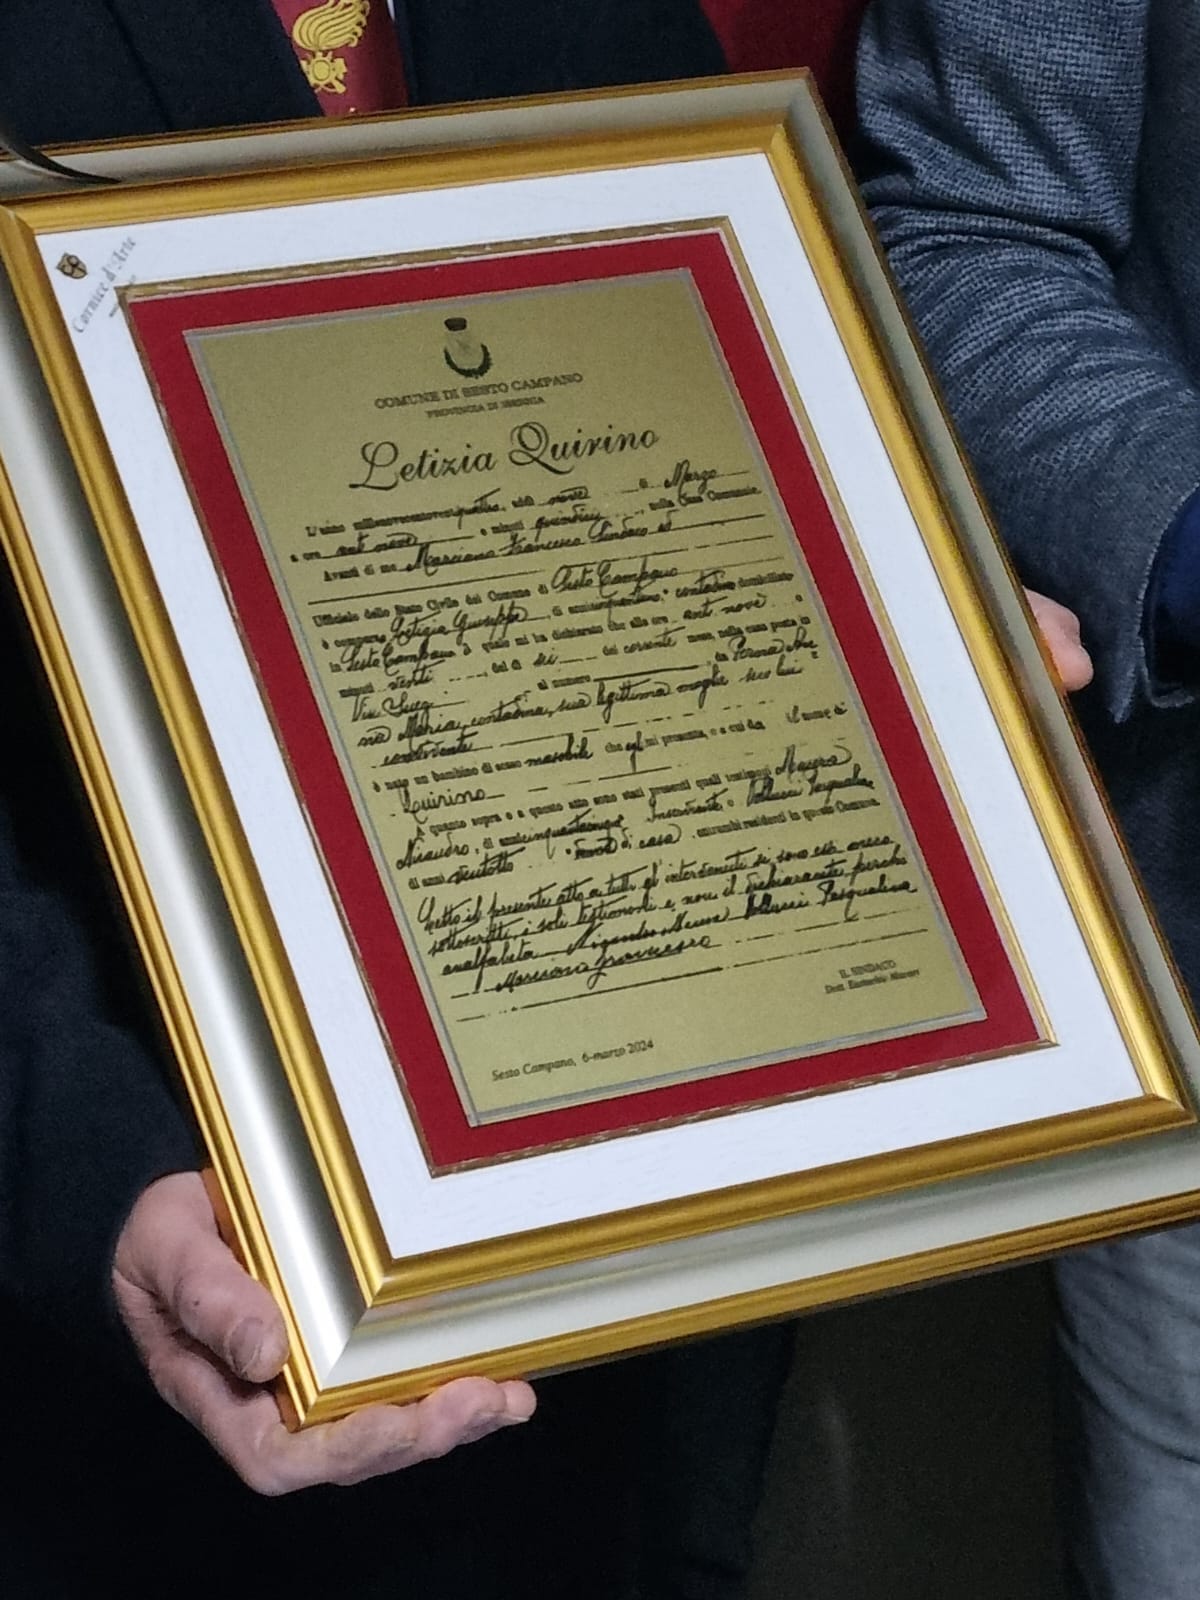 Cornice d'Arte
COMUNE DI SESTO CAMPANO
PROVINCIA DI ISERNIA
Letizia Quirino
L'anno millenovecentoventiquattro, addì nove di Marzo
a ore ant nove e minuti quindici, nella Casa Comunale.
Avanti di me Marciano Francesco Sindaco ed
Ufficiale dello Stato Civile del Comune di Sesto Campano
è comparso Letizia Giuseppe, di anni cinquantuno, contadino domiciliato
in Sesto Campano il quale mi ha dichiarato che alle ore ant nove e
minuti venti del dì sei del corrente mese, nella casa posta in
Via al numero da Perna
Maria, contadina, sua legittima moglie seco lui
convivente
è nato un bambino di sesso maschile che egli mi presenta, e a cui dà il nome di
Quirino
A quanto sopra e a questo atto sono stati presenti quali testimoni
Nicandro, di anni cinquantacinque Inserviente e Pasqualina,
di anni ventotto di casa entrambi residenti in questo Comune.
Letto il presente atto a tutti gl'intervenuti si sono essi meco
sottoscritti, i soli testimoni e non il dichiarante perché
analfabeta. Pasqualina
Marciano Francesco
IL SINDACO
Dott. Eustachio
Sesto Campano, 6-marzo 2024